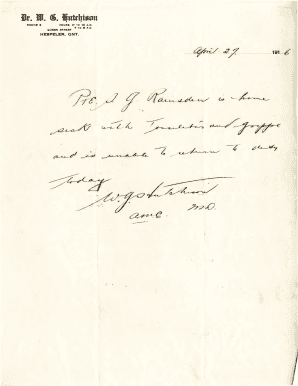 Dr. W. G. Hutchison
QUEEN STREET
HESPELER, ONT.
April 29 1916
Pte. J G Ramsden is home
sick with Tonsilitis and Grippe
and is unable to return to duty
today
W.G. Hutchison
AMC. M.D.